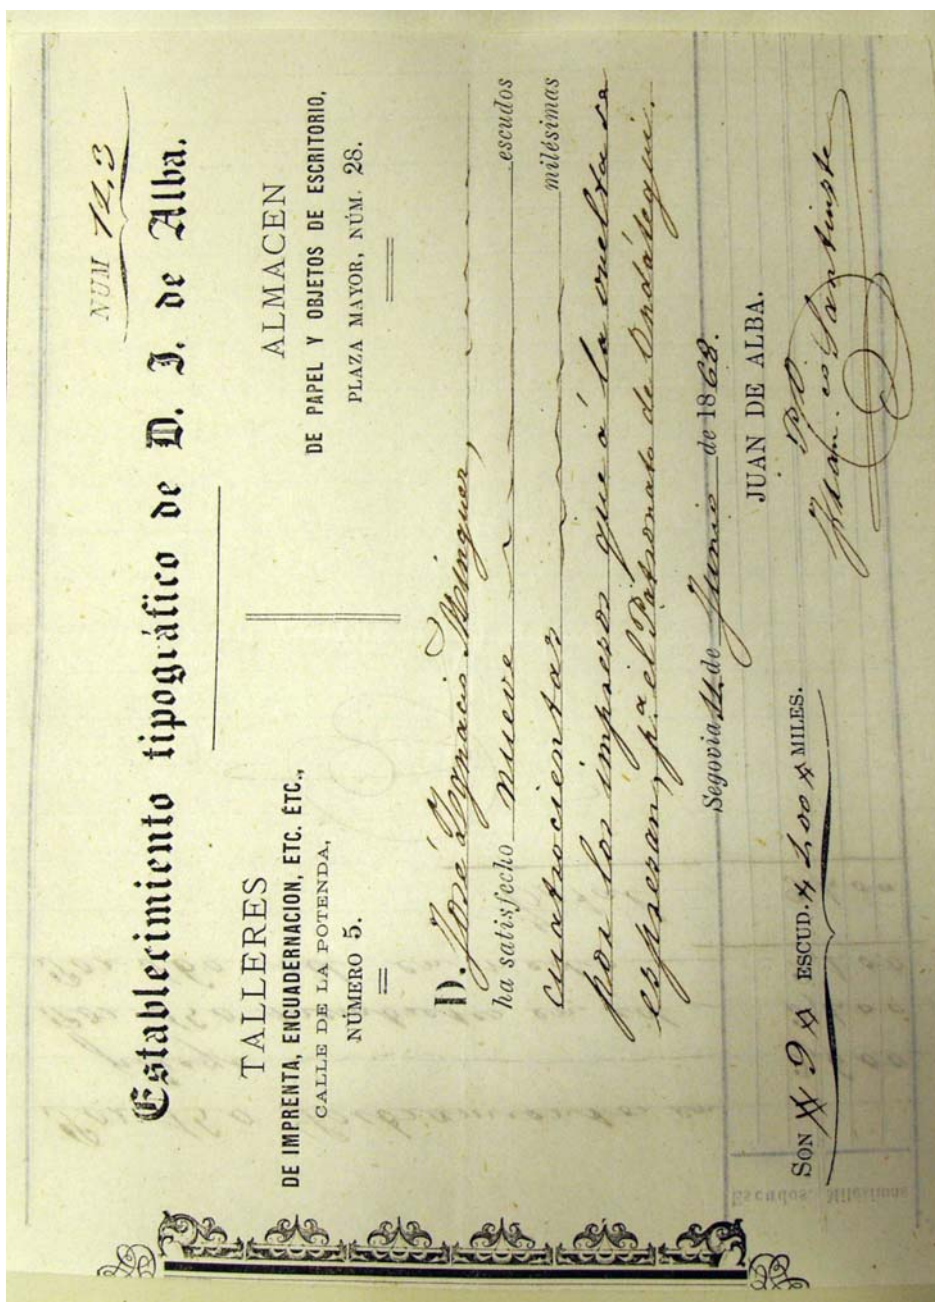 NUM 143
Establecimiento tipográfico de D. J. de Alba.
TALLERES
DE IMPRENTA, ENCUADERNACION, ETC. ÉTC.,
CALLE DE LA POTENDA,
NUMERO 5.
ALMACEN
DE PAPEL Y OBJETOS DE ESCRITORIO,
PLAZA MAYOR, NÚM. 28.
D. José Ignacio Minguez,
ha satisfecho nueve escudos
cuatrocientas milésimas
por los impresos que á la vuelta se
espresan, pª el Patronato de Ondátegui.
Segovia 11 de Junio de 1868.
JUAN DE ALBA.
P.O.
Fran.co Santiuste
SON 9 ESCUD. 400 MILES.
Escudos. Milésimas